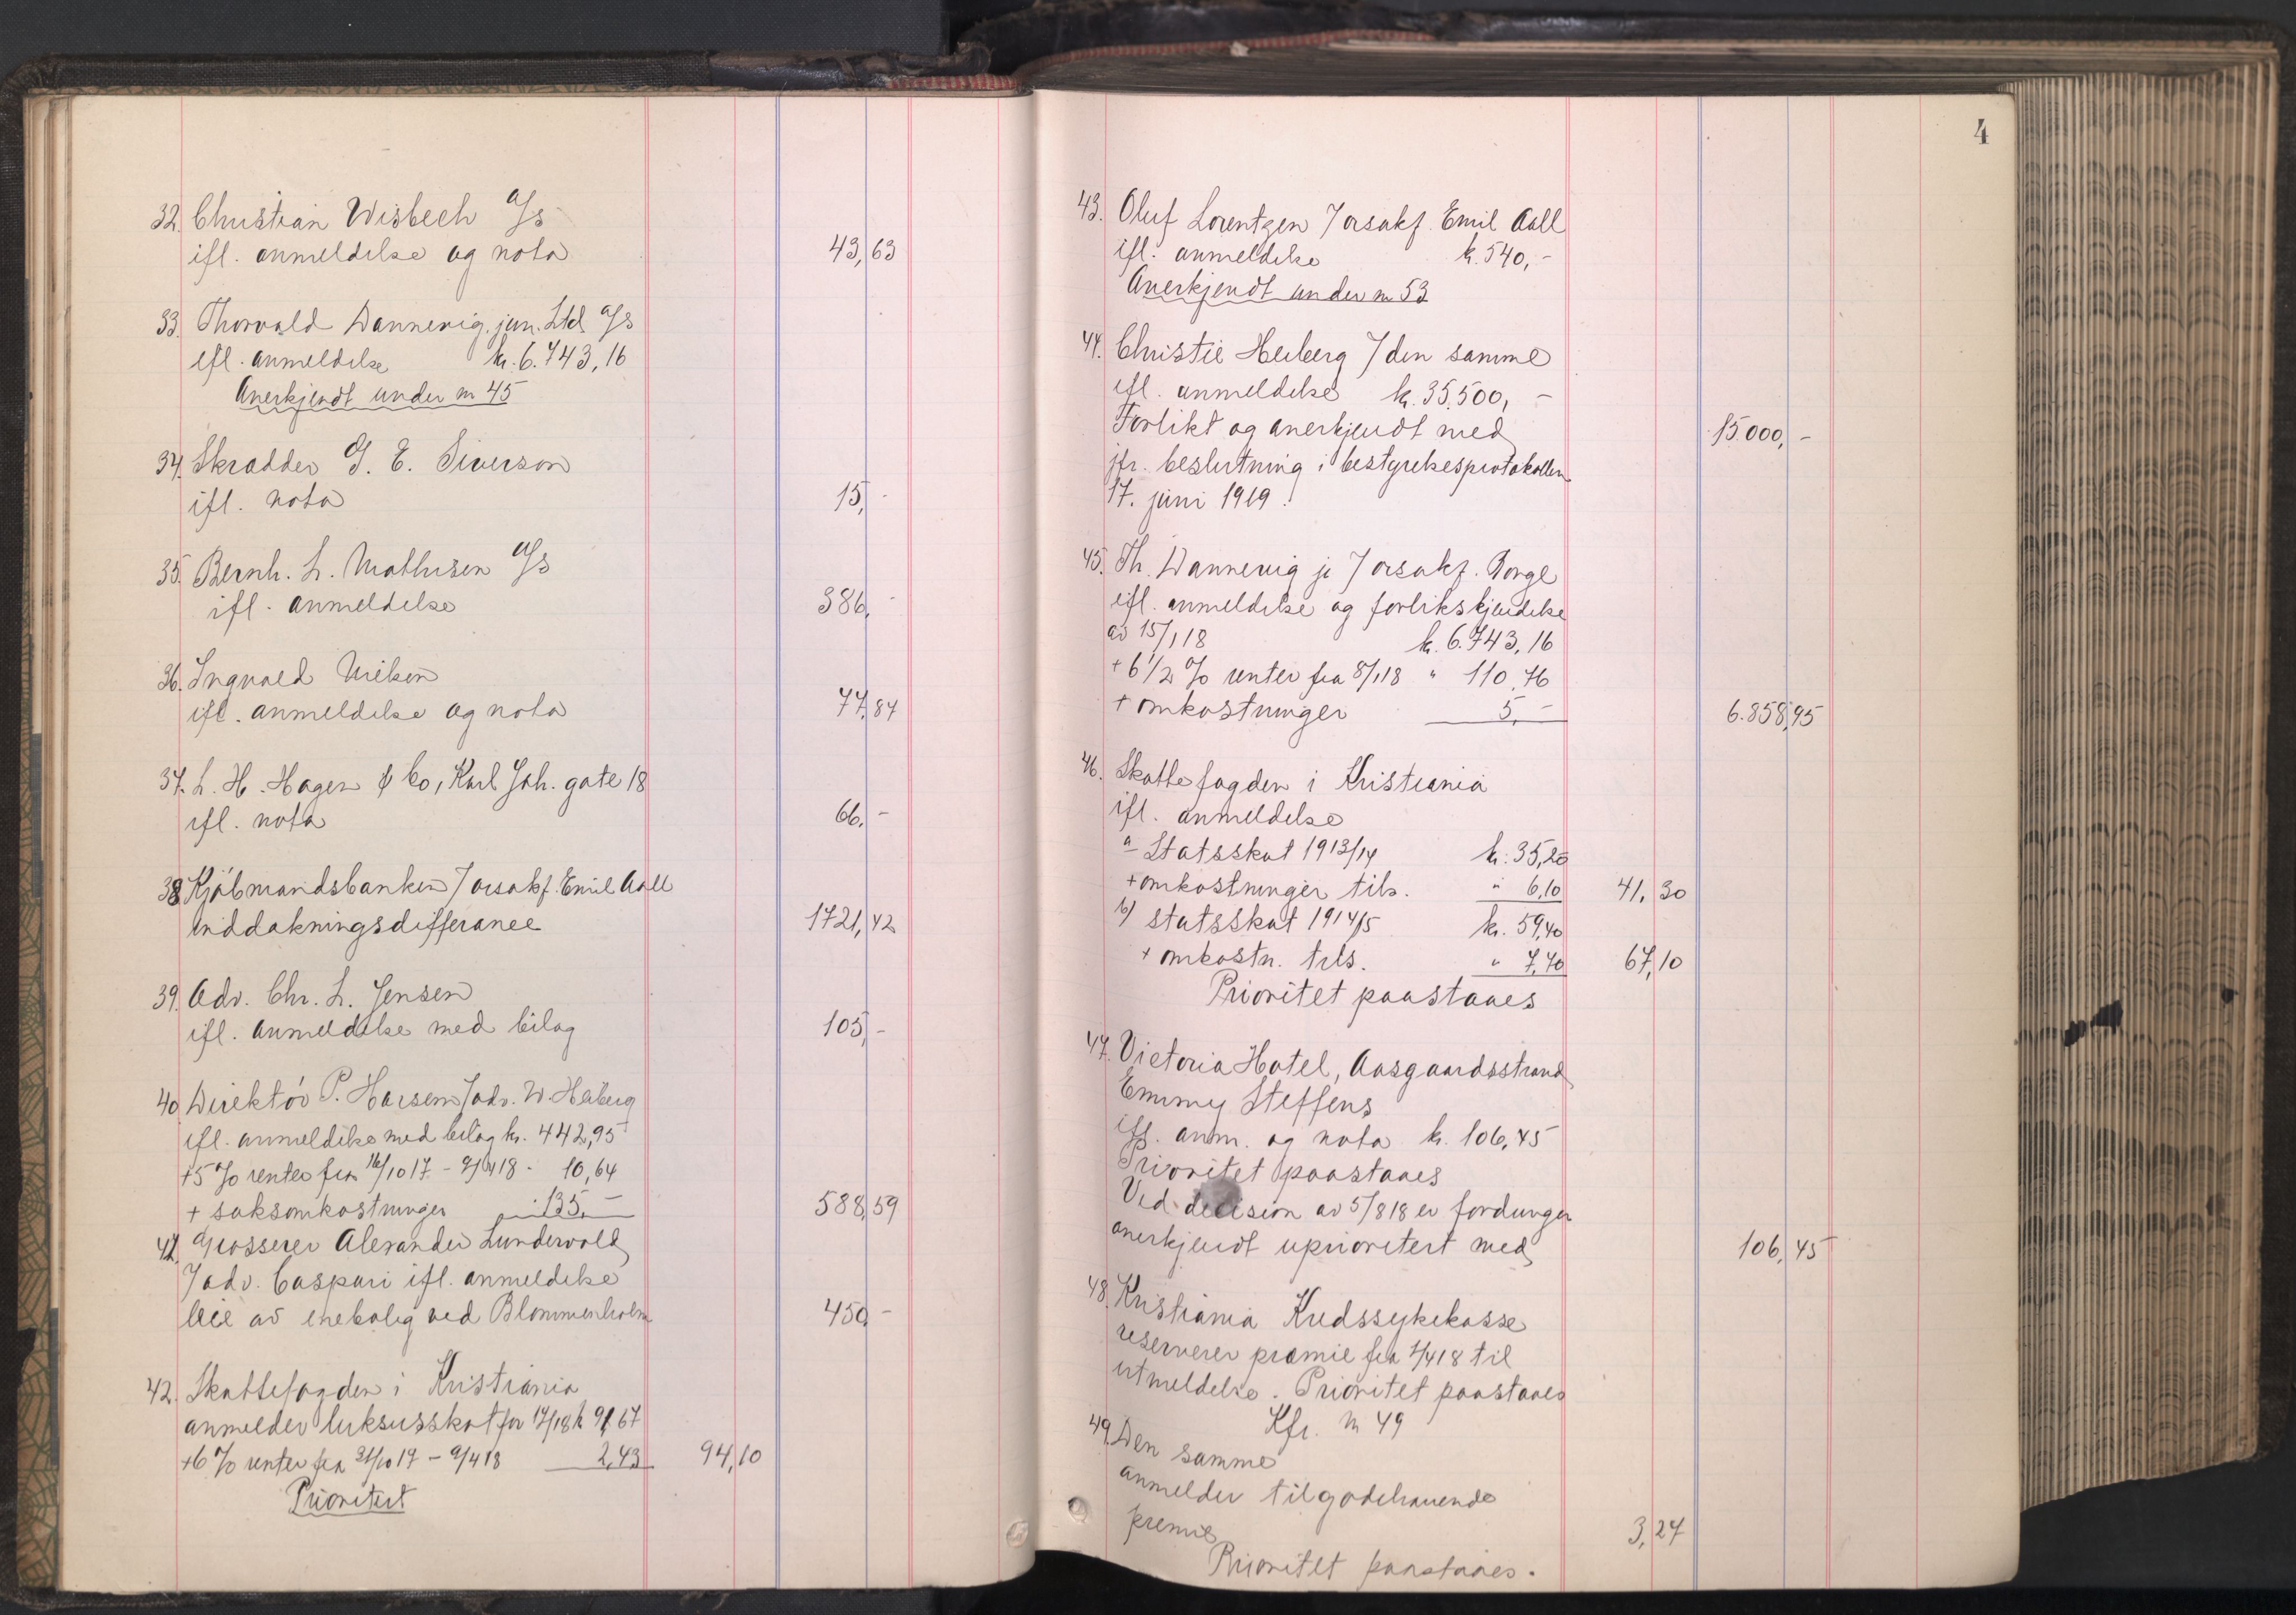 32. Christian Wisbech A/S
ifl. anmeldelse og nota 43,63
33. Thorvald Dannevig jun. Ltd A/S
ifl. anmeldelse kr. 6.743,16
Anerkjendt under nr 45
34. Skrædder G. E. Siverson
ifl. nota 15,-
35. Bernh. L. Mathisen A/S
ifl. anmeldelse 386,-
36. Ingvald
ifl. anmeldelse og nota 77,84
37. L. H. Hagen & Co, Karl Joh. gate 18
ifl. nota 66,-
38 Kjöbmandsbanken / orsakf. Emil Aall
inddækningsdifferance 1721,42
39. Adv. Chr. L. Jensen
ifl. anmeldelse med bilag 105,-
40. Direktör P. Harsem / adv. W. Heiberg
ifl. anmeldelse med bilag kr. 442,95
+5 % renter fra 16/10 17 - 9/4 18 - 10,64
+ saksomkostninger - 135,- 588,59
41. Grosserer Alexander Lundevold
/ adv. Caspari ifl. anmeldelse
leie av enebolig ved Blommenholm 450,-
42. Skattefogden i Kristiania
anmelder luksusskat for 17/18 k 91,67
+6 % renter fra 31/10 17 - 9/4 18 2,43 94,10
Prioritert
4
43. Oluf Lorentzen / orsakf. Emil Aall
ifl. anmeldelse k. 540,-
Anerkjendt under nr 53
44. Christie Heiberg / den samme
ifl. anmeldelse k. 35.500,-
Forlikt og anerkjendt med 15.000,-
jfr. beslutning i bestyrelsesprotokollen
17. juni 1919.
45. Th. Dannevig jr / orsakf. Borge
ifl. anmeldelse og forlikskjendelse
av 15/1 18 k. 6.743,16
+ 6 1/2 % renter fra 8/1 18 " 110,76
+ omkostninger 5,- 6.858,95
46. Skattefogden i Kristiania
ifl. anmeldelse
a Statsskat 1913/14 kr. 35,20
+omkostninger tils. " 6,10 41,30
b) statsskat 1914/15 kr. 59,40
+ omkostn. tils. " 7,70 67,10
Prioritet paastaaes
47. Victoria Hotel, Aasgaardsstrand
Emmy Steffens
ifl. anm. og nota k. 106,45
Prioritet paastaaes
Ved decision av 5/8 18 er fordringen
anerkjendt uprioritert med 106,45
48. Kristiania Kredssykekasse
reserverer præmie fra 1/4 18 til
utmeldelse. Prioritet paastaaes
Kfr. nr 49
49. Den samme
anmelder tilgodehavende
premie 3,24
Prioritet paastaaes.